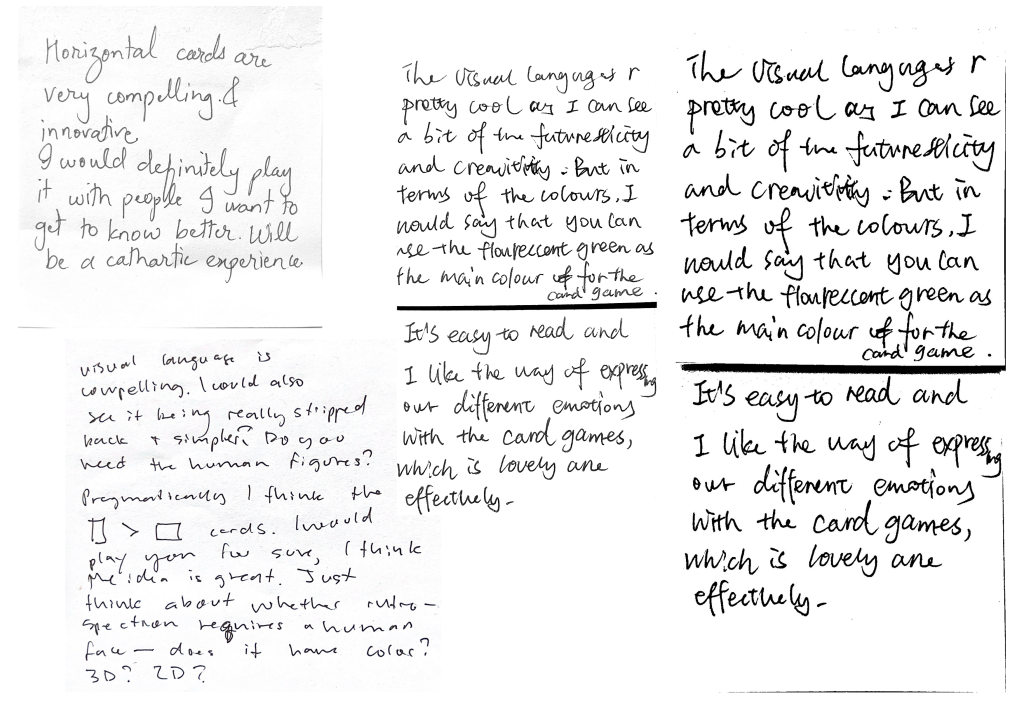 Horizontal cards are
very compelling. &
innovative
I would definitely play
it with people I want to
get to know better. Will
be a cathartic experience
visual language is
compelling. I could also
see it being really stripped
back + simpler? Do you
need the human figures?
Pragmatically I think the
> cards. I would
play your for sure, I think
the idea is great. Just
think about whether retro-
spection requires a human
face — does it have color?
3D? 2D?
The visual languages r
pretty cool as I can see
a bit of the futuresticity
and creativity. But in
terms of the colours, I
would say that you can
use the flourescent green as
the main colour of for the
card game.
It's easy to read and
I like the way of expressing
our different emotions
with the card games,
which is lovely and
effectively-
The visual languages r
pretty cool as I can see
a bit of the futuresticity
and creativity. But in
terms of the colours, I
would say that you can
use the flourescent green as
the main colour of for the
card game.
It's easy to read and
I like the way of expressing
our different emotions
with the card games,
which is lovely and
effectively-